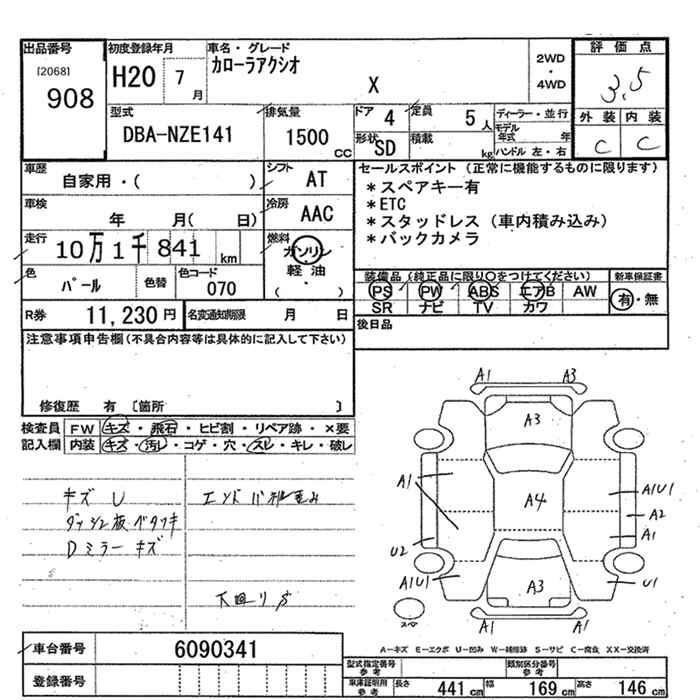 出品番号
[2068]
908
初度登録年月
H20 7月
車名・グレード
カローラアクシオ
X
2WD
・
4WD
評価点
3.5
外装 内装
C C
型式
DBA-NZE141
排気量
1500 cc
ドア
4
定員
5人
形状
SD
積載
kg
ディーラー・並行
モデル年式 年
ハンドル 左・右
車歴
自家用・( )
シフト
AT
車検
年 月( 日)
冷房
AAC
走行
10万1千841 km
燃料
ガソリン
軽油
・
( )
色
パール
色替
色コード
070
R券
11,230円
名変通知期限 月 日
セールスポイント (正常に機能するものに限ります)
*スペアキー有
*ETC
*スタッドレス (車内積み込み)
*バックカメラ
装備品 (純正品に限り○をつけてください)
PS PW ABS エアB AW
SR ナビ TV カワ
新車保証書
有・無
後日品
注意事項申告欄 (不具合内容等は具体的に記入して下さい)
修復歴 有 〔箇所 〕
検査員記入欄
FW キズ・飛石・ヒビ割・リペア跡・×要
内装 キズ・汚レ・コゲ・穴・スレ・キレ・破レ
キズU
ダッシュ板ベタツキ
Dミラーキズ
下回りS
A1 A3
A3
A1
A4
A1U1
A2
A1
U2
A1U1
U1
A3
A1 A1
A-キズ E-エクボ U-凹み W-補修跡 S-サビ C-腐食 XX-交換済
車台番号
6090341
登録番号
型式指定番号 参考
類別区分番号 参考
車検証明用 参考
長さ 441 cm
幅 169 cm
高さ 146 cm